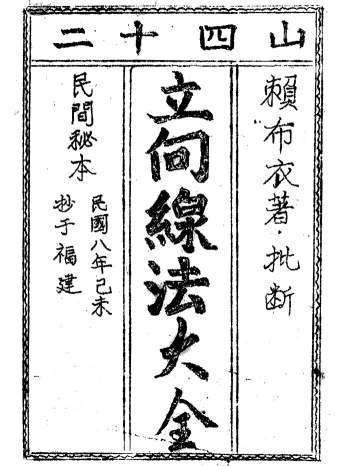 山四十二
賴布衣著·批断
立向線法大全
民間秘本
民國八年己未
抄于福建